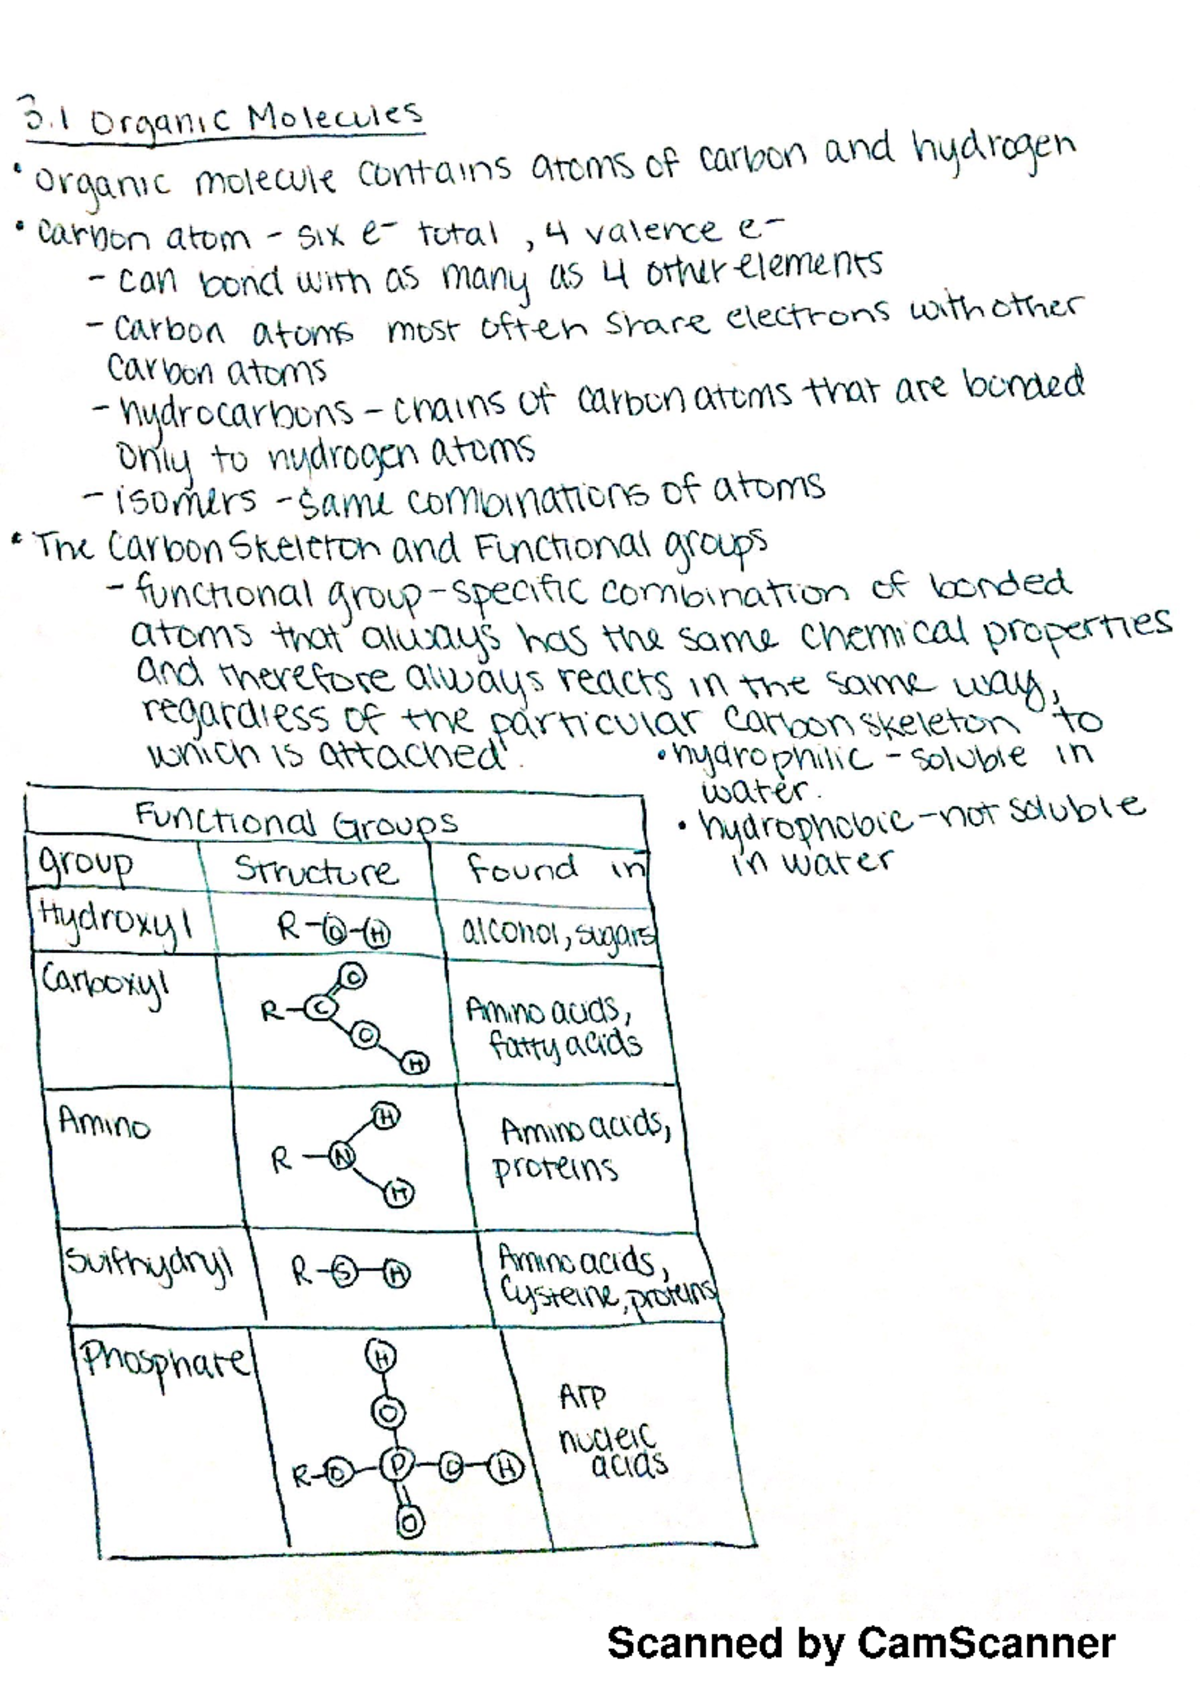 3.1 Organic Molecules
• organic molecule contains atoms of carbon and hydrogen
• carbon atom - six e- total, 4 valence e-
- can bond with as many as 4 other elements
- carbon atoms most often share electrons with other
carbon atoms
- hydrocarbons - chains of carbon atoms that are bonded
only to hydrogen atoms
- isomers - same combinations of atoms
• The Carbon Skeleton and Functional groups
- functional group - specific combination of bonded
atoms that always has the same chemical properties
and therefore always reacts in the same way,
regardless of the particular carbon skeleton to
which is attached.
• hydrophilic - soluble in
water.
• hydrophobic - not soluble
in water
Functional Groups
group Structure found in
Hydroxyl R-O-H alcohol, sugars
Carboxyl
O
R-C
O
H
Amino acids,
fatty acids
Amino
H
R-N
H
Amino acids,
proteins
Sulfhydryl R-S-H
Amino acids,
Cysteine, proteins
Phosphate
H
O
R-O-P-O-H
O
ATP
nucleic
acids
Scanned by CamScanner